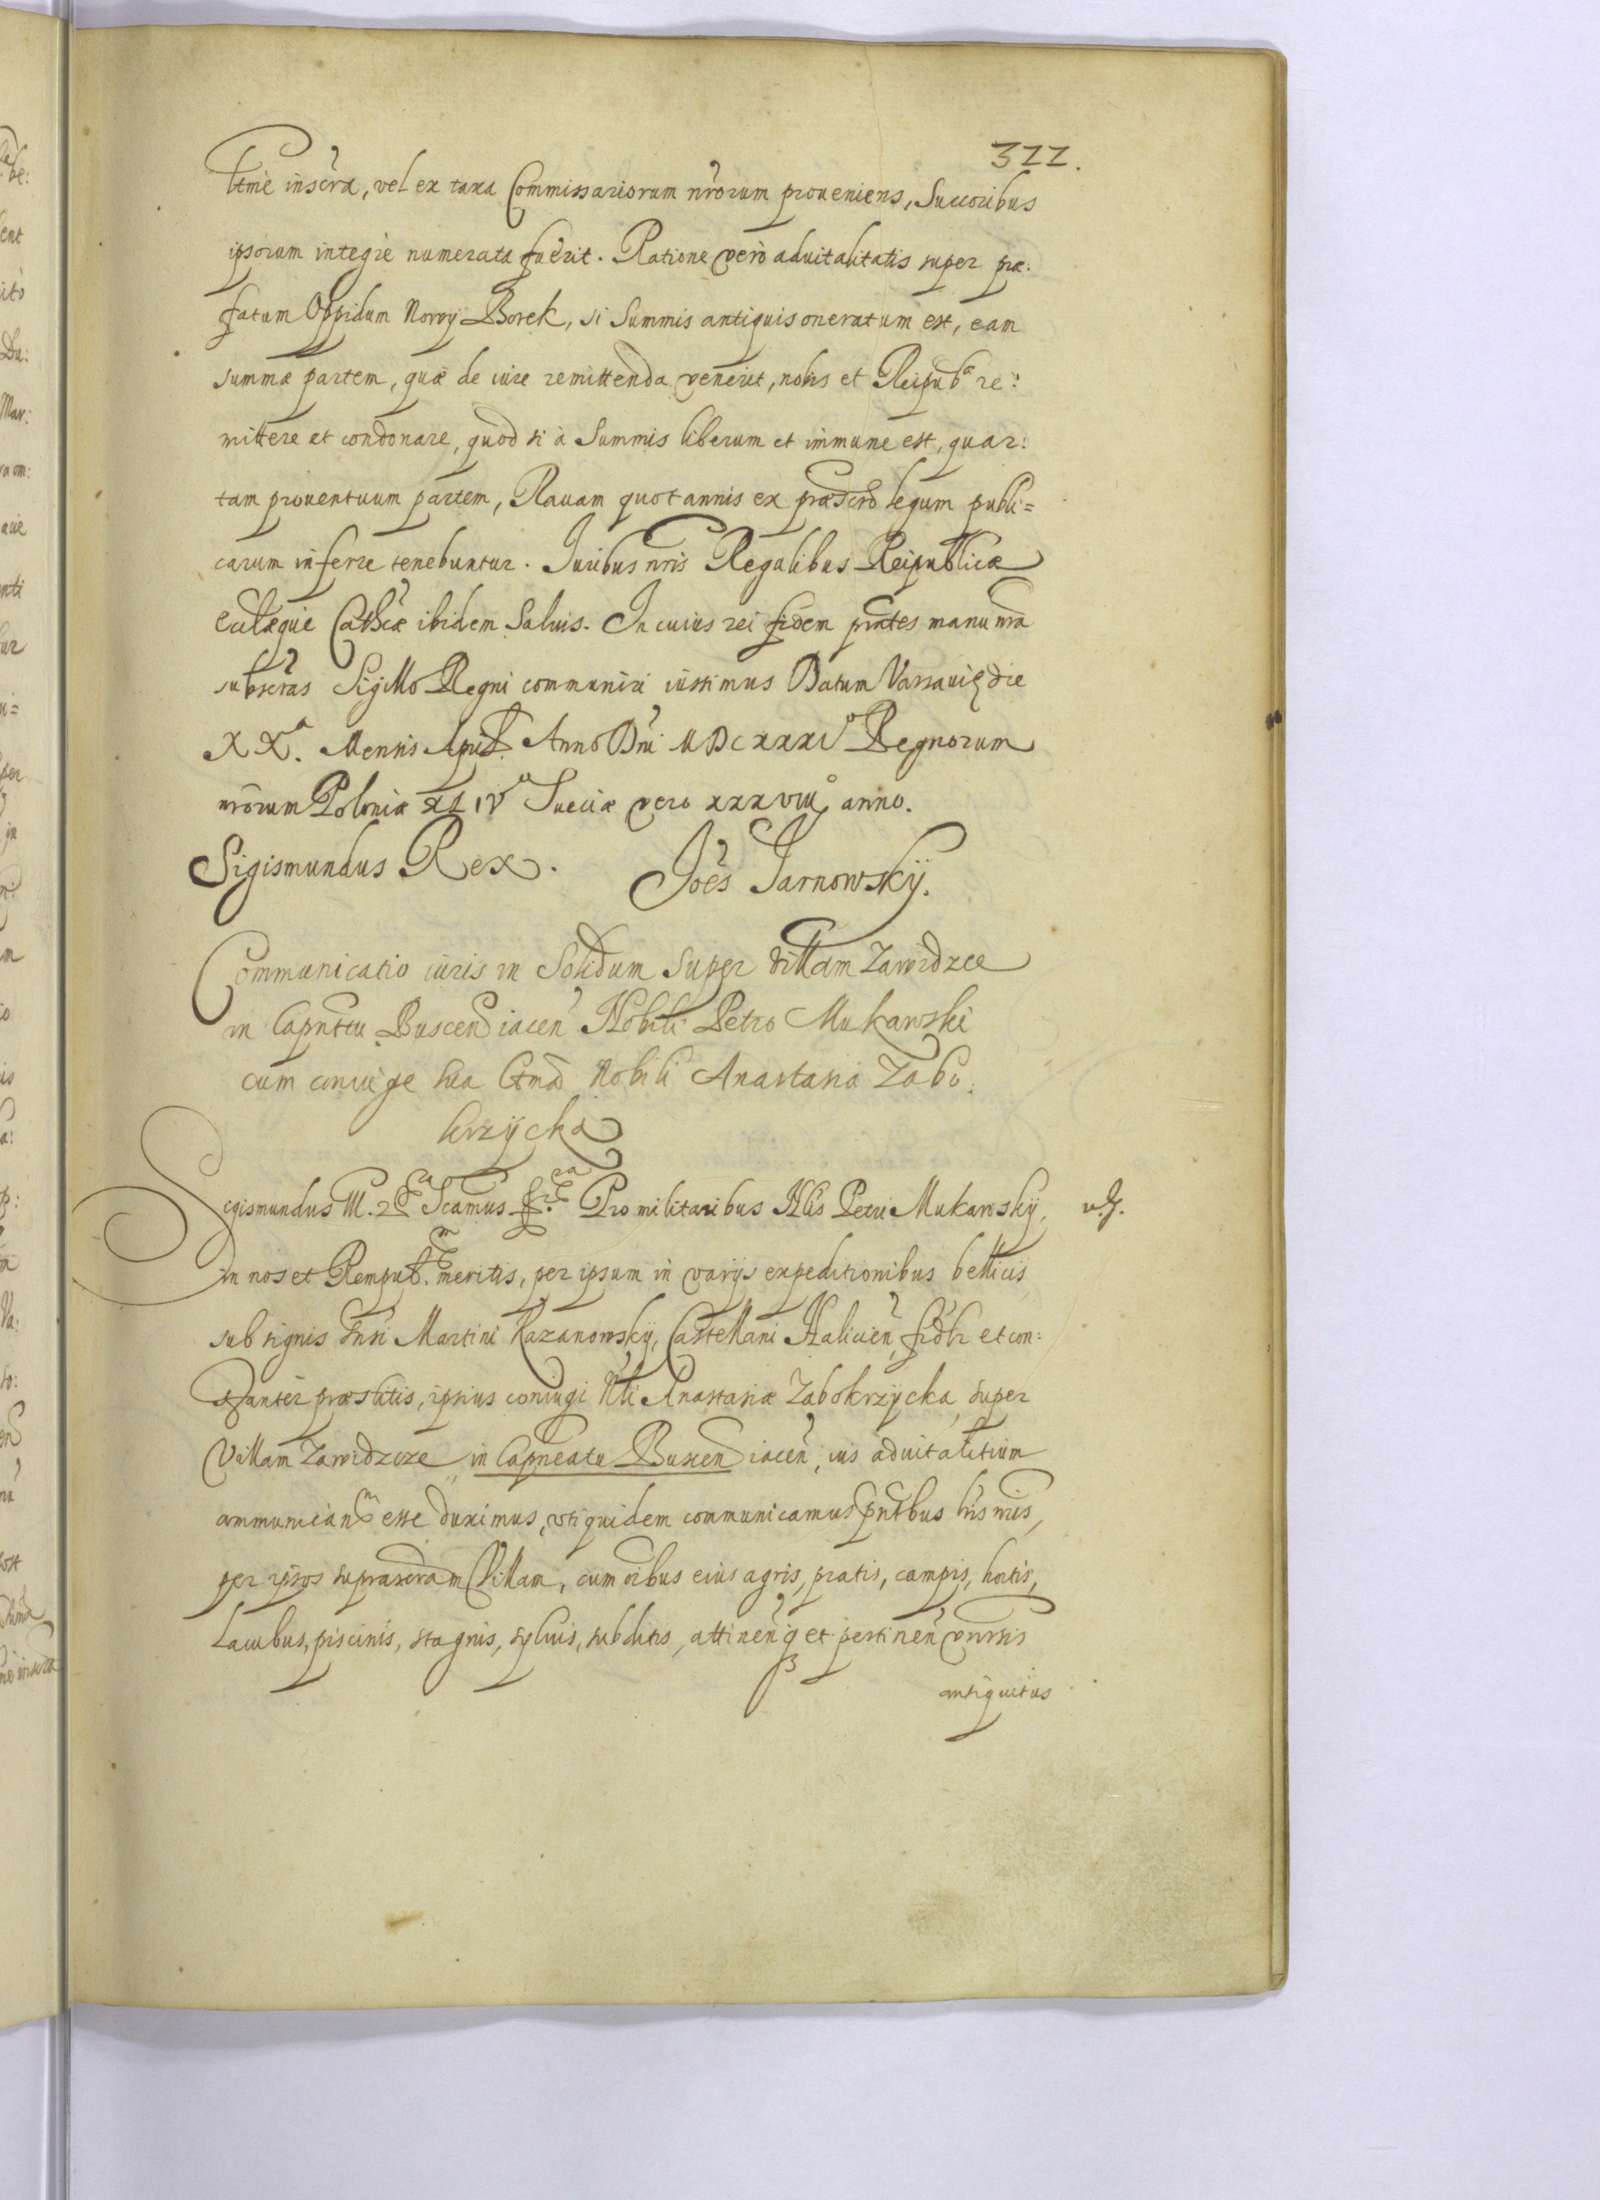 322.
ltmè inscra, vel ex taxa Commissariorum nrorum proueniens, Succoribus
ipsorum integrè numerata fuerit. Ratione vero aduitalitatis super præ:
fatum Oppidum Nowy Borek, si Summis antiquis oneratum est, eam
summæ partem, quæ de iure remittenda veneret, nobis et Reipubᵃ re:
mittere et condonare, quod si à Summis liberum et immune est, quar:
tam prouentuum partem, Rauam quotannis ex præscro legum publi=
carum inferre tenebuntur. Juribus nris Regalibus Reipublicæ
Ecclæque Cathcæ ibidem Saluis. In cuius rei fidem pntes manu nra
subscras Sigillo Regni communiri iussimus Datum Varsauię die
XXᵃ. Mensis April. Anno Dni MDCXXXIᵒ Regnorum
nrorum Poloniæ XLIVᵒ Sueciæ vero XXXVIIIᵒ anno.
Sigismundus Rex. Joes Tarnowskÿ.
Communicatio iuris in Solidum Super Villam Zawidzce
in Capnttu Buscen iacen Nobili Petro Mukawski
cum coniuge sua Gtnad Nobili Anastasia Zabo:
krzÿcka
Sigismundus III. Scamus Pro militaribus Nlis Petri Mukawskÿ, v. J.
in nos et Rempub. meritis, per ipsum in varijs expeditionibus bellicis
sub signis Gnsi Martini Kazanowskÿ, Castellani Halicien, fidlr et con:
stanter præstitis, ipsius coniugi Nli Anastasiæ Zabokrzÿcka, super
Villam Zawidzcze in Capneatu Buscen iacen, ius aduitalitium
communican esse duximus, vti quidem communicamus pntbus lris nris,
per ipsos suprascram Villam, cum oibus eius agris, pratis, campis, hortis,
Lacubus, piscinis, stagnis, syluis, subditis, attinen q et pertinen vnirsis
antiquitus